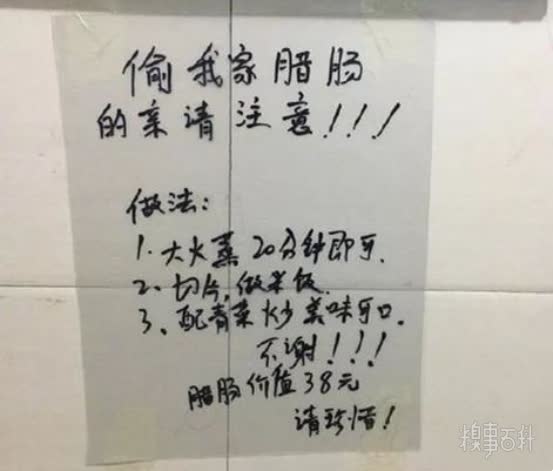 偷我家腊肠
的亲请注意!!!
做法:
1.大火蒸20分钟即可.
2、切片,做米饭.
3、配青菜炒美味可口.
不谢!!!
腊肠价值38元
请珍惜!
糗事百科